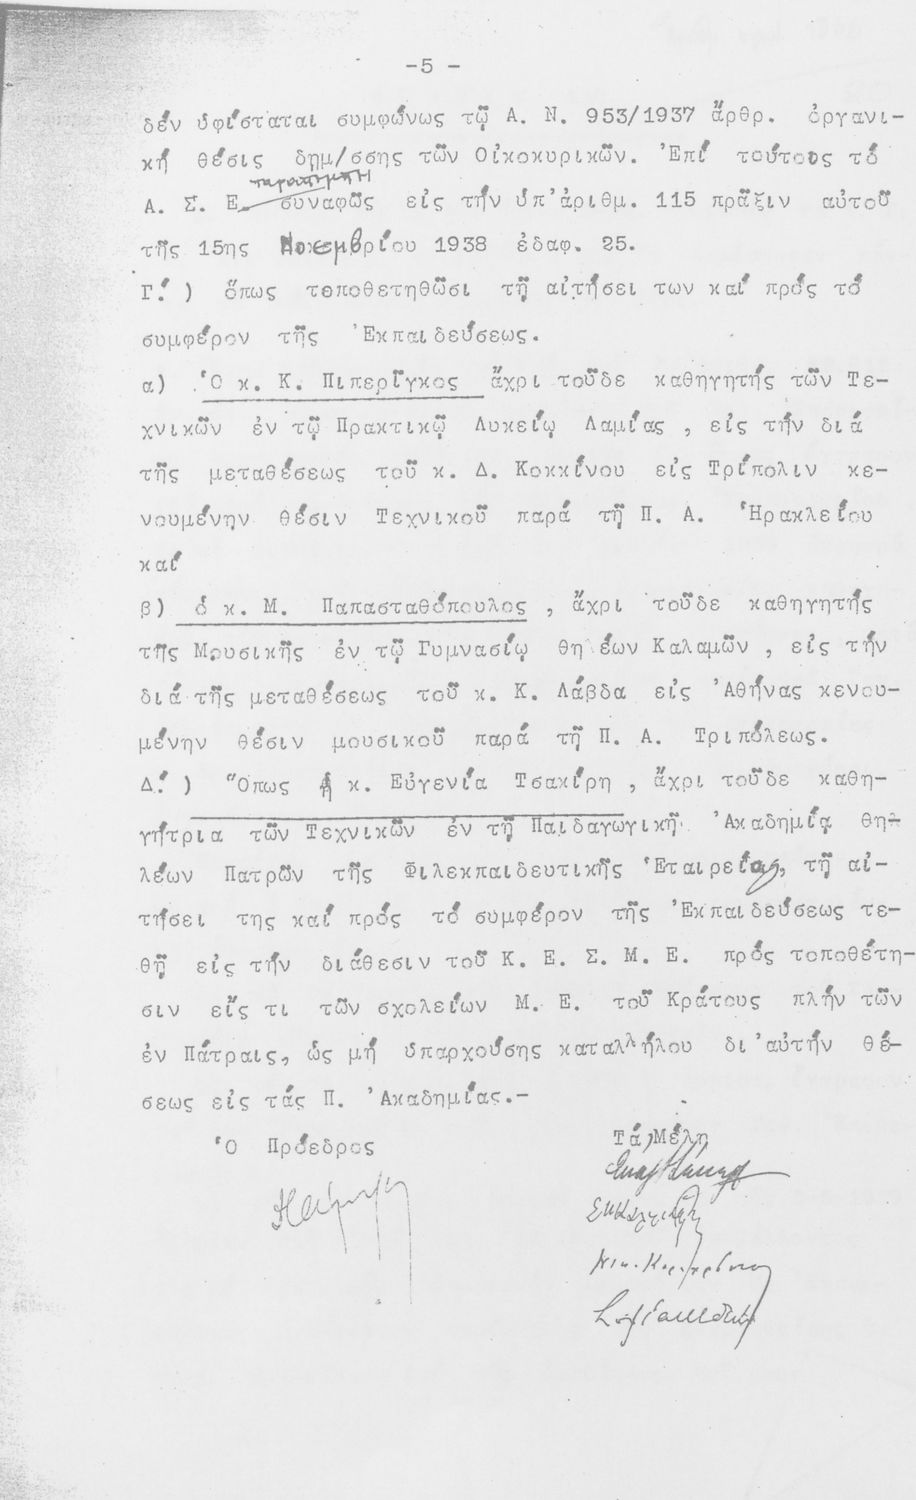 -5 -
δέν ὑφίσταται συμφώνως τῷ Α. Ν. 953/1937 ἄρθρ. ὀργανι-
κή θέσις δημ/σσης τῶν Οἰκοκυρικῶν. Ἐπί τούτοις τό
παραπέμπει
Α. Σ. Ε. συναφῶς εἰς τήν ὑπ'ἀριθμ. 115 πρᾶξιν αὐτοῦ
τῆς 15ης Νοεμβρίου 1938 ἐδαφ. 25.
Γ.') ὅπως τοποθετηθῶσι τῇ αἰτήσει των καί πρός τό
συμφέρον τῆς Ἐκπαιδεύσεως.
α) Ὁ κ. Κ. Πιπερίγκος ἄχρι τοῦδε καθηγητής τῶν Τε-
χνικῶν ἐν τῷ Πρακτικῷ Λυκείῳ Λαμίας, εἰς τήν διά
τῆς μεταθέσεως τοῦ κ. Δ. Κοκκίνου εἰς Τρίπολιν κε-
νουμένην θέσιν Τεχνικοῦ παρά τῇ Π. Α. Ἡρακλείου
καί
β) ὁ κ. Μ. Παπασταθόπουλος, ἄχρι τοῦδε καθηγητής
τῆς Μουσικῆς ἐν τῷ Γυμνασίῳ θηλέων Καλαμῶν, εἰς τήν
διά τῆς μεταθέσεως τοῦ κ. Κ. Λάβδα εἰς Ἀθήνας κενου-
μένην θέσιν μουσικοῦ παρά τῇ Π. Α. Τριπόλεως.
Δ.') Ὅπως ἡ κ. Εὐγενία Τσακίρη, ἄχρι τοῦδε καθη-
γήτρια τῶν Τεχνικῶν ἐν τῇ Παιδαγωγικῇ Ἀκαδημίᾳ θη-
λέων Πατρῶν τῆς Φιλεκπαιδευτικῆς Ἑταιρείας, τῇ αἰ-
τήσει της καί πρός τό συμφέρον τῆς Ἐκπαιδεύσεως τε-
θῇ εἰς τήν διάθεσιν τοῦ Κ. Ε. Σ. Μ. Ε. πρός τοποθέτη-
σιν εἴς τι τῶν σχολείων Μ. Ε. τοῦ Κράτους πλήν τῶν
ἐν Πάτραις, ὡς μή ὑπαρχούσης καταλλήλου δι'αὐτήν θέ-
σεως εἰς τάς Π. Ἀκαδημίας.-
Ὁ Πρόεδρος Τά Μέλη